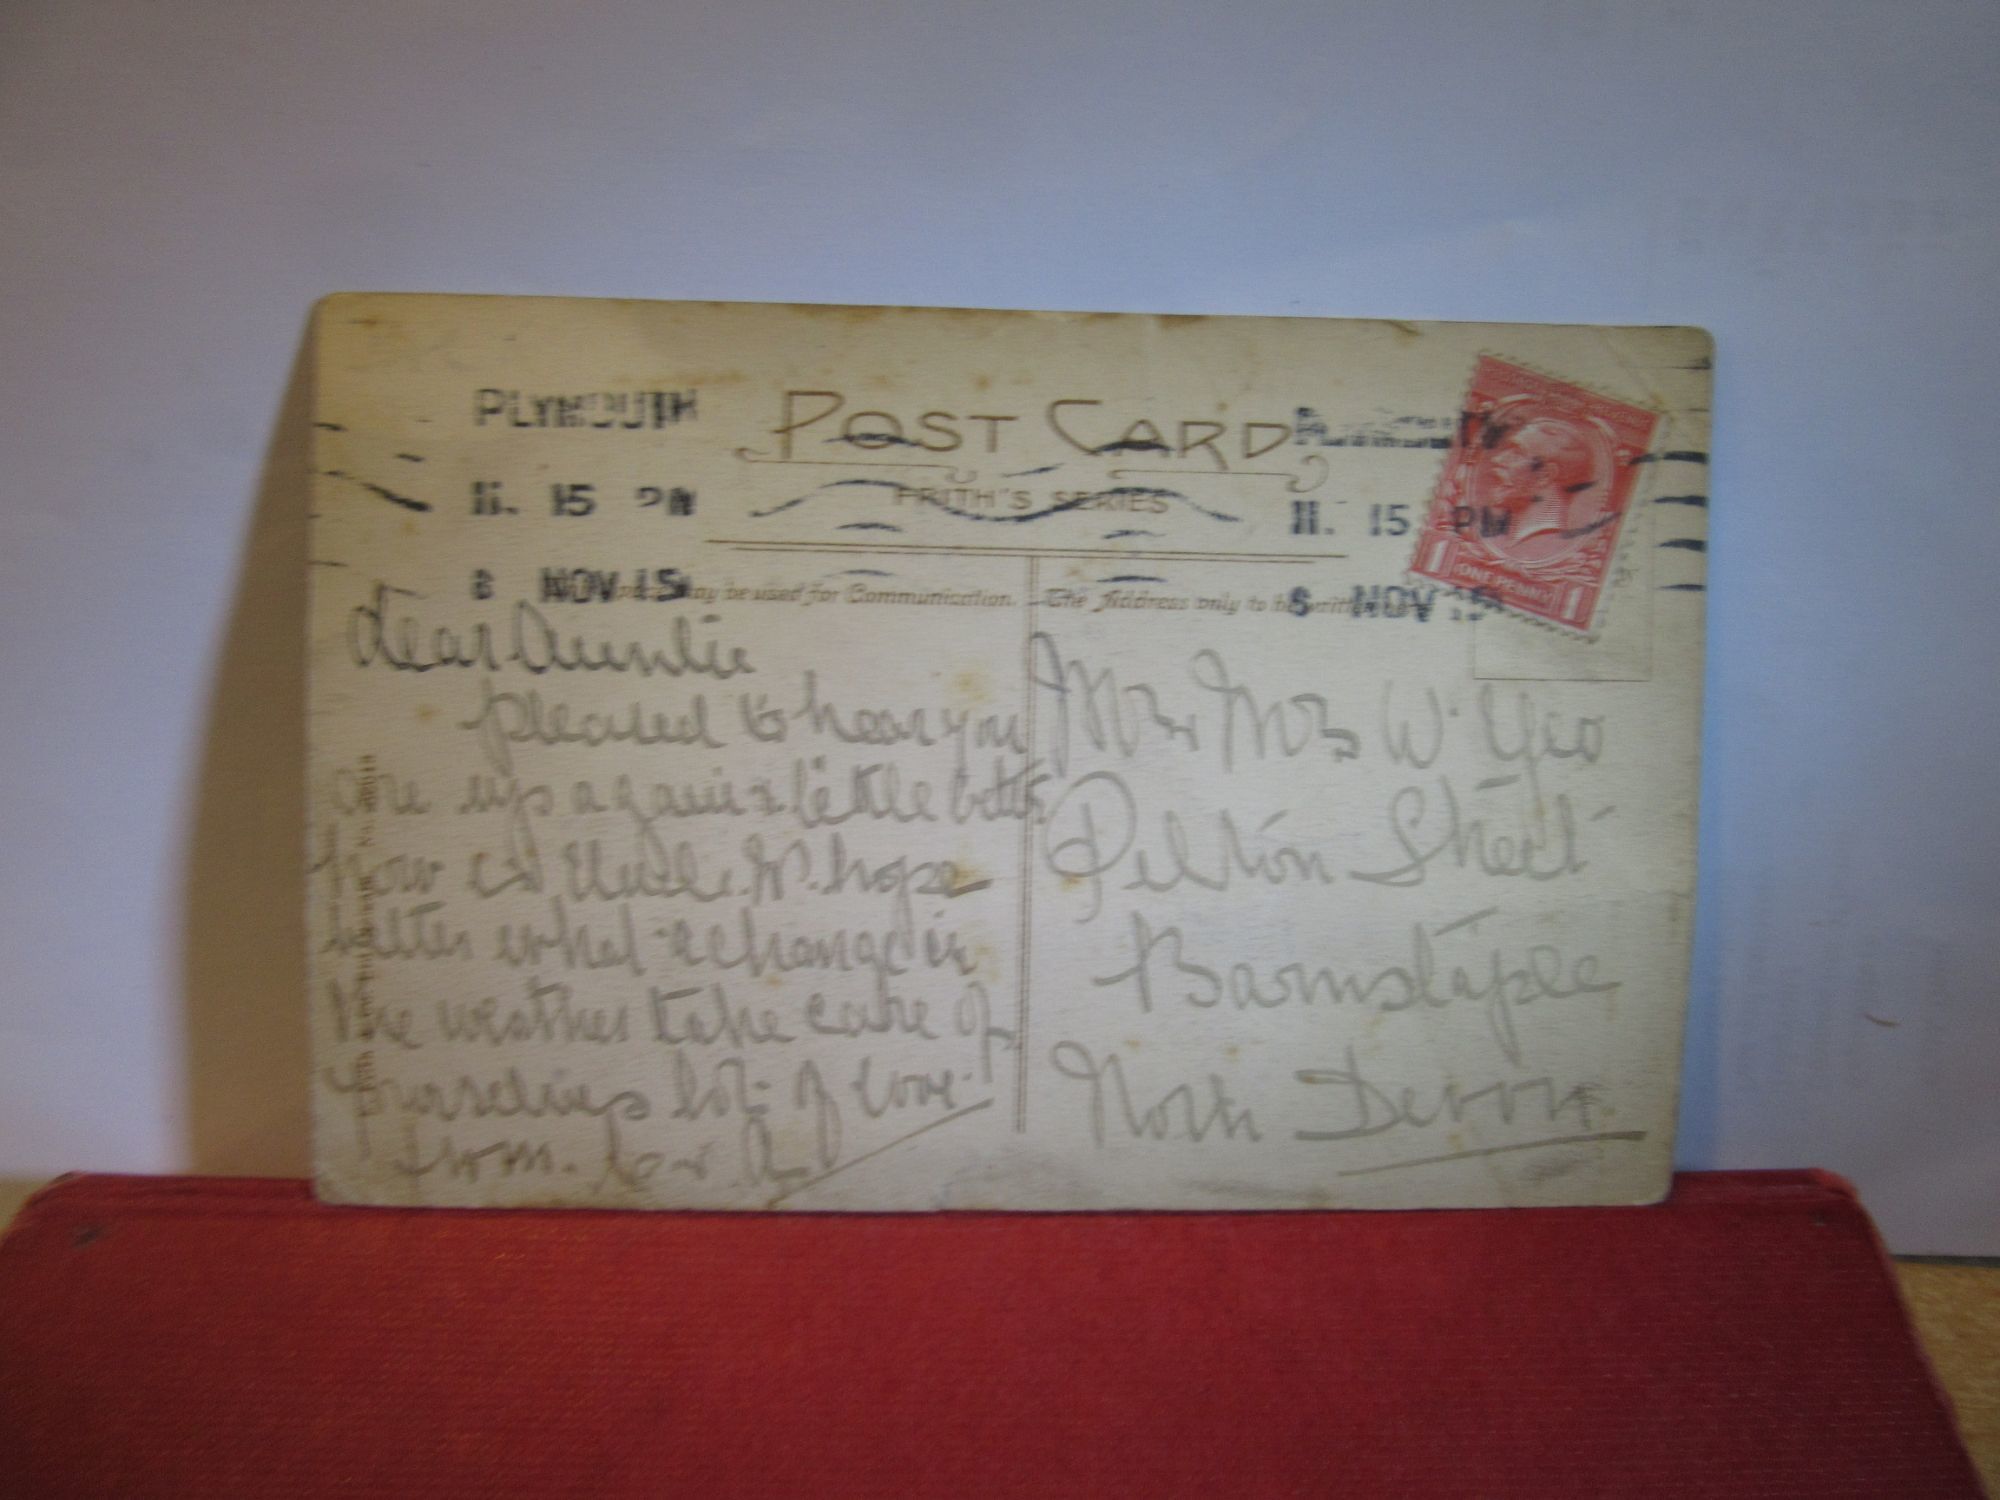 PLYMOUTH
11. 15 PM
8 NOV 15
POST CARD
FRITH'S SERIES
PLYMOUTH
11. 15 PM
8 NOV 15
ONE PENNY
1 1
may be used for Communication.
The Address only to be written
Dear Auntie
pleased to hear you
are up again & little better
how is Uncle W. hope
better what a change in
the weather take care of
yourselves lots of love.
from. C & A
Mr & Mrs W. Yeo
Pilton Street
Barnstaple
North Devon.